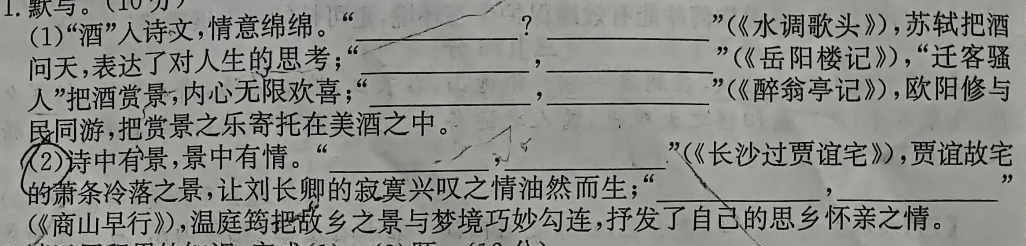 1. 默写。(10分)
(1)“酒”入诗文,情意绵绵。“____________? ____________”(《水调歌头》),苏轼把酒
问天,表达了对人生的思考;“____________,____________”(《岳阳楼记》),“迁客骚
人”把酒赏景,内心无限欢喜;“____________,____________”(《醉翁亭记》),欧阳修与
民同游,把赏景之乐寄托在美酒之中。
(2)诗中有景,景中有情。“____________,____________”(《长沙过贾谊宅》),贾谊故宅
的萧条冷落之景,让刘长卿的寂寞兴叹之情油然而生;“____________,____________”
(《商山早行》),温庭筠把故乡之景与梦境巧妙勾连,抒发了自己的思乡怀亲之情。